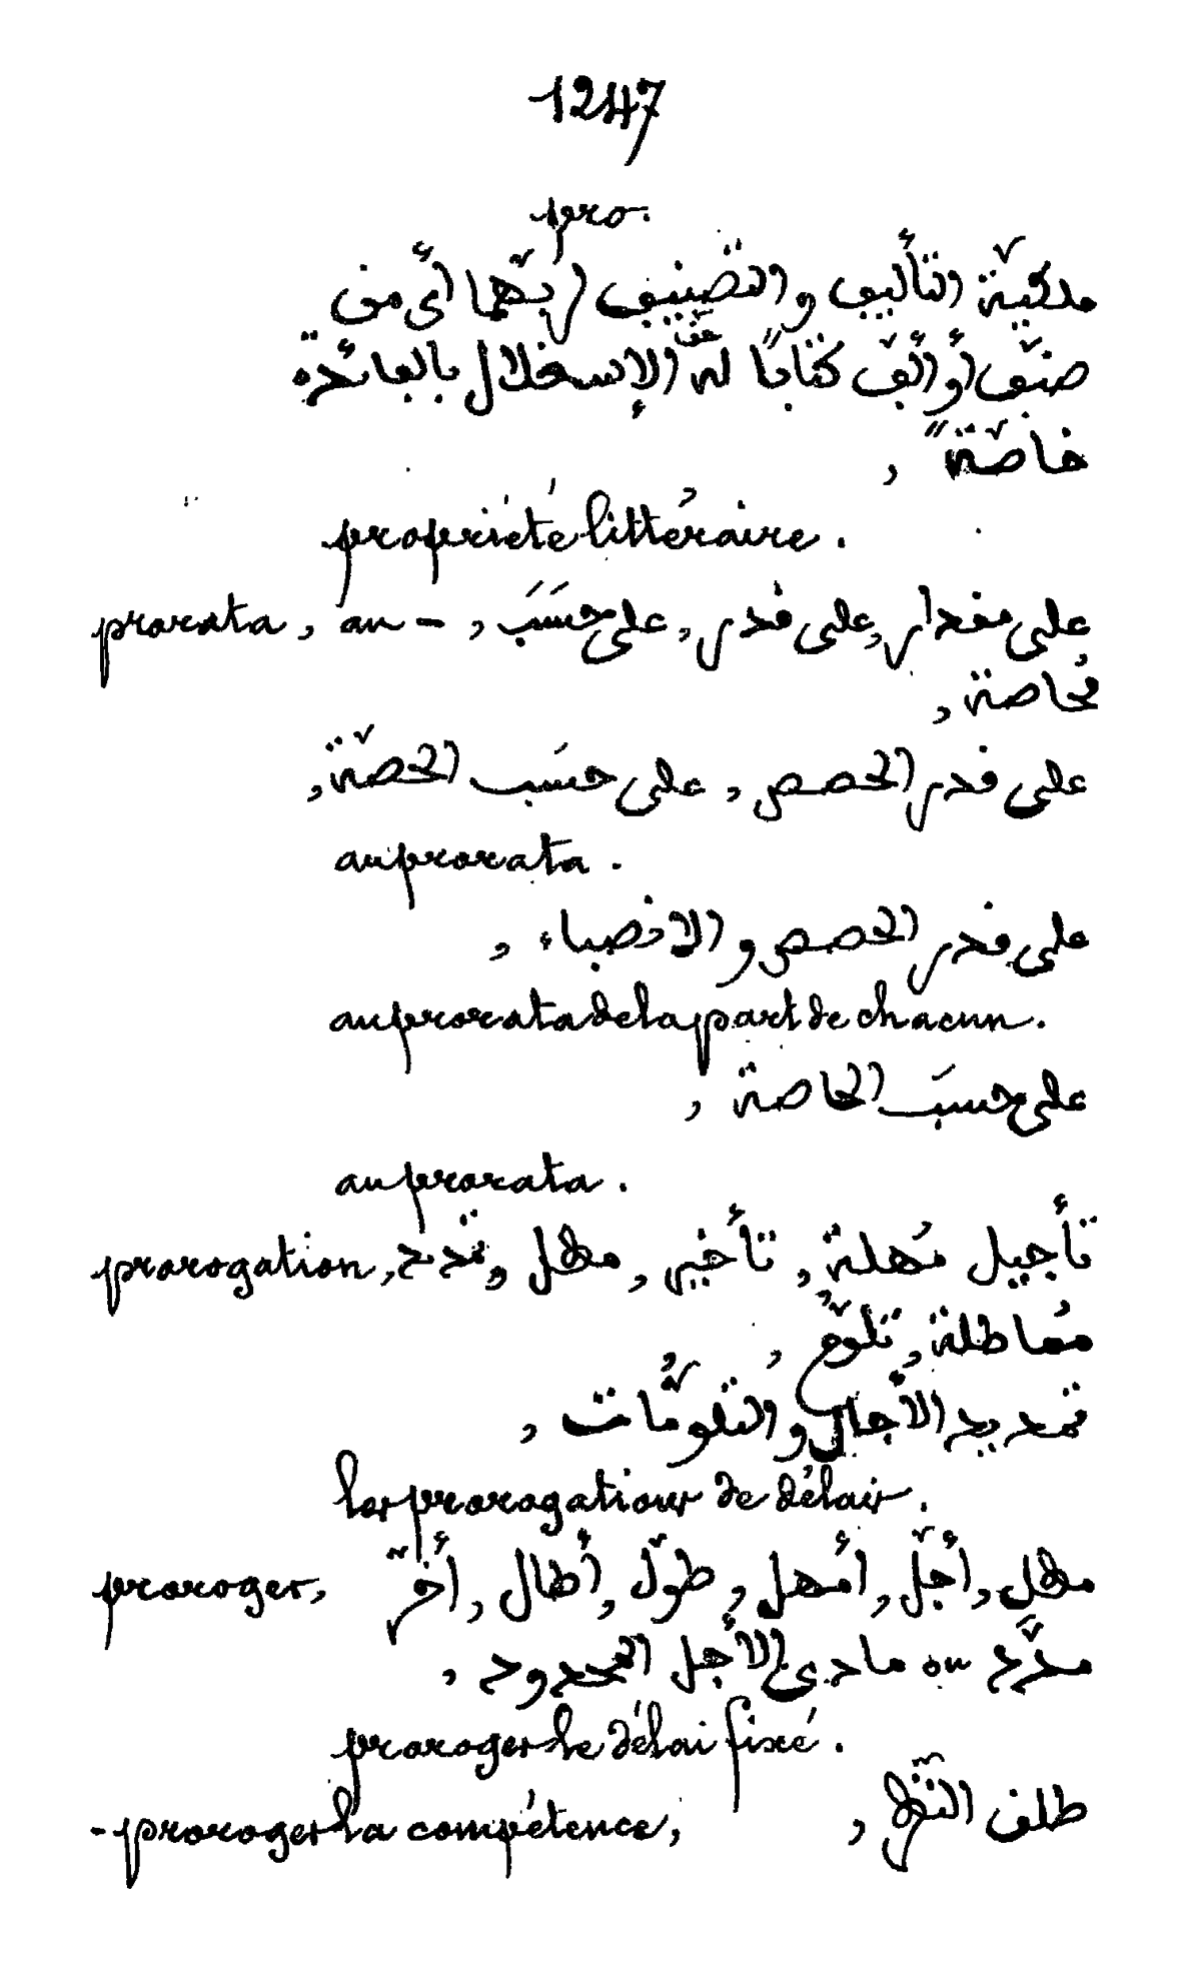 1247
pro.
ملكيّة التأليف والتّصنيف لربّهما أي من
صنّف أو ألّف كتابًا له حقّ الإستغلال بالعائدة
خاصّةً,
propriété littéraire.
prorata, au –, على مقدار, على قدر, على حَسَبَ
مُحاصة,
على قدر الحصص, على حسَب الحصّة,
au prorata.
على قدر الحصص والانصباء,
au prorata de la part de chacun.
على حسَب المحاصة,
au prorata.
prorogation, تأجيل مُهلة, تأخير, مهل, تمديد,
مُماطلة, تلوّم,
تمديد الآجال والتلوُّمات,
les prorogations de délais.
proroger, مهل, أجّل, أمهل, طوّل, أطال, أخّر,
مدّد ou مادى الأجل المحدود,
proroger le délai fixé.
- proroger la compétence, النّظر,